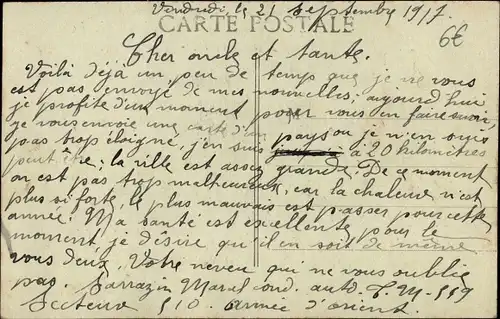 Vendredi le 21 septembre 1917
CARTE POSTALE
6€
Cher oncle et tante.
Voilà déjà un peu de temps que je ne vous
est pas envoyé de mes nouvelles; aujourd'hui
je profite d'un moment pour vous en faire savoir
je vous envoie une carte d'un pays ou je n'en suis
pas trop éloigné, j'en suis a 20 kilomètres
peut être; la ville est assez grande. De ce moment
on est pas trop malheureux, car la chaleur n'est
plus si forte, le plus mauvais est passer pour cette
année. Ma santé est excellente pour le
moment, je désire qu'il en soit de même
vous deux. Votre neveu qui ne vous oublie
pas. Sarrazin Marcel cond. auto. T.M-559
Secteur 510. Armée d'orient.